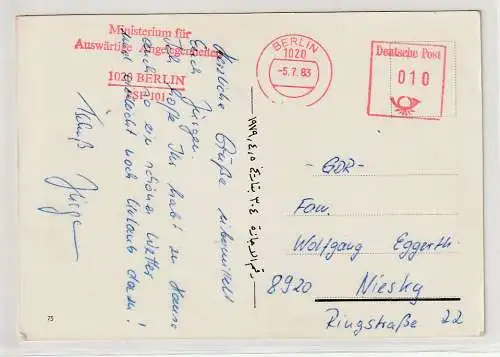 Ministerium für
Auswärtige Angelegenheiten
1020 BERLIN
BERLIN
1020
-5.7.83
Deutsche Post
010
Herzliche Grüße übermittelt
Euch Jürgen.
Ich hoffe Ihr habt zu Hause
auch so ein schönes Wetter
und vielleicht noch Urlaub dazu!
Tschüß
Jürgen
-GDR-
Fam.
Wolfgang Eggerth
8920 Niesky
Ringstraße 22
75